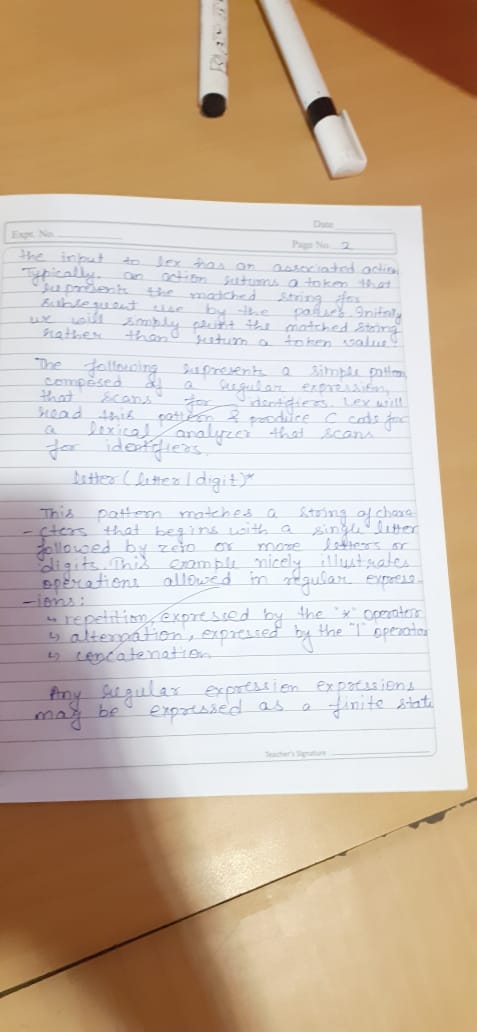 Date
Expt. No.
Page No. 2
the input to lex has an associated action
Typically, an action returns a token that
represents the matched string for
subsequent use by the parser. Initialy
we will simply print the matched string
rather than return a token value
The following represents a simple pattern
composed of a regular expression,
that scans for identifiers. Lex will
read this pattern & produce C code for
a lexical analyzer that scans
for identifiers.
letter (letter | digit)*
This pattern matches a string of chara
-cters that begins with a single letter
followed by zero or more letters or
digits. This example nicely illustrates
operations allowed in regular express-
-ions:
↳ repetition, expressed by the "*" operator
↳ alternation, expressed by the "|" operator
↳ concatenation.
Any regular expression expressions
may be expressed as a finite state
Teacher's Signature